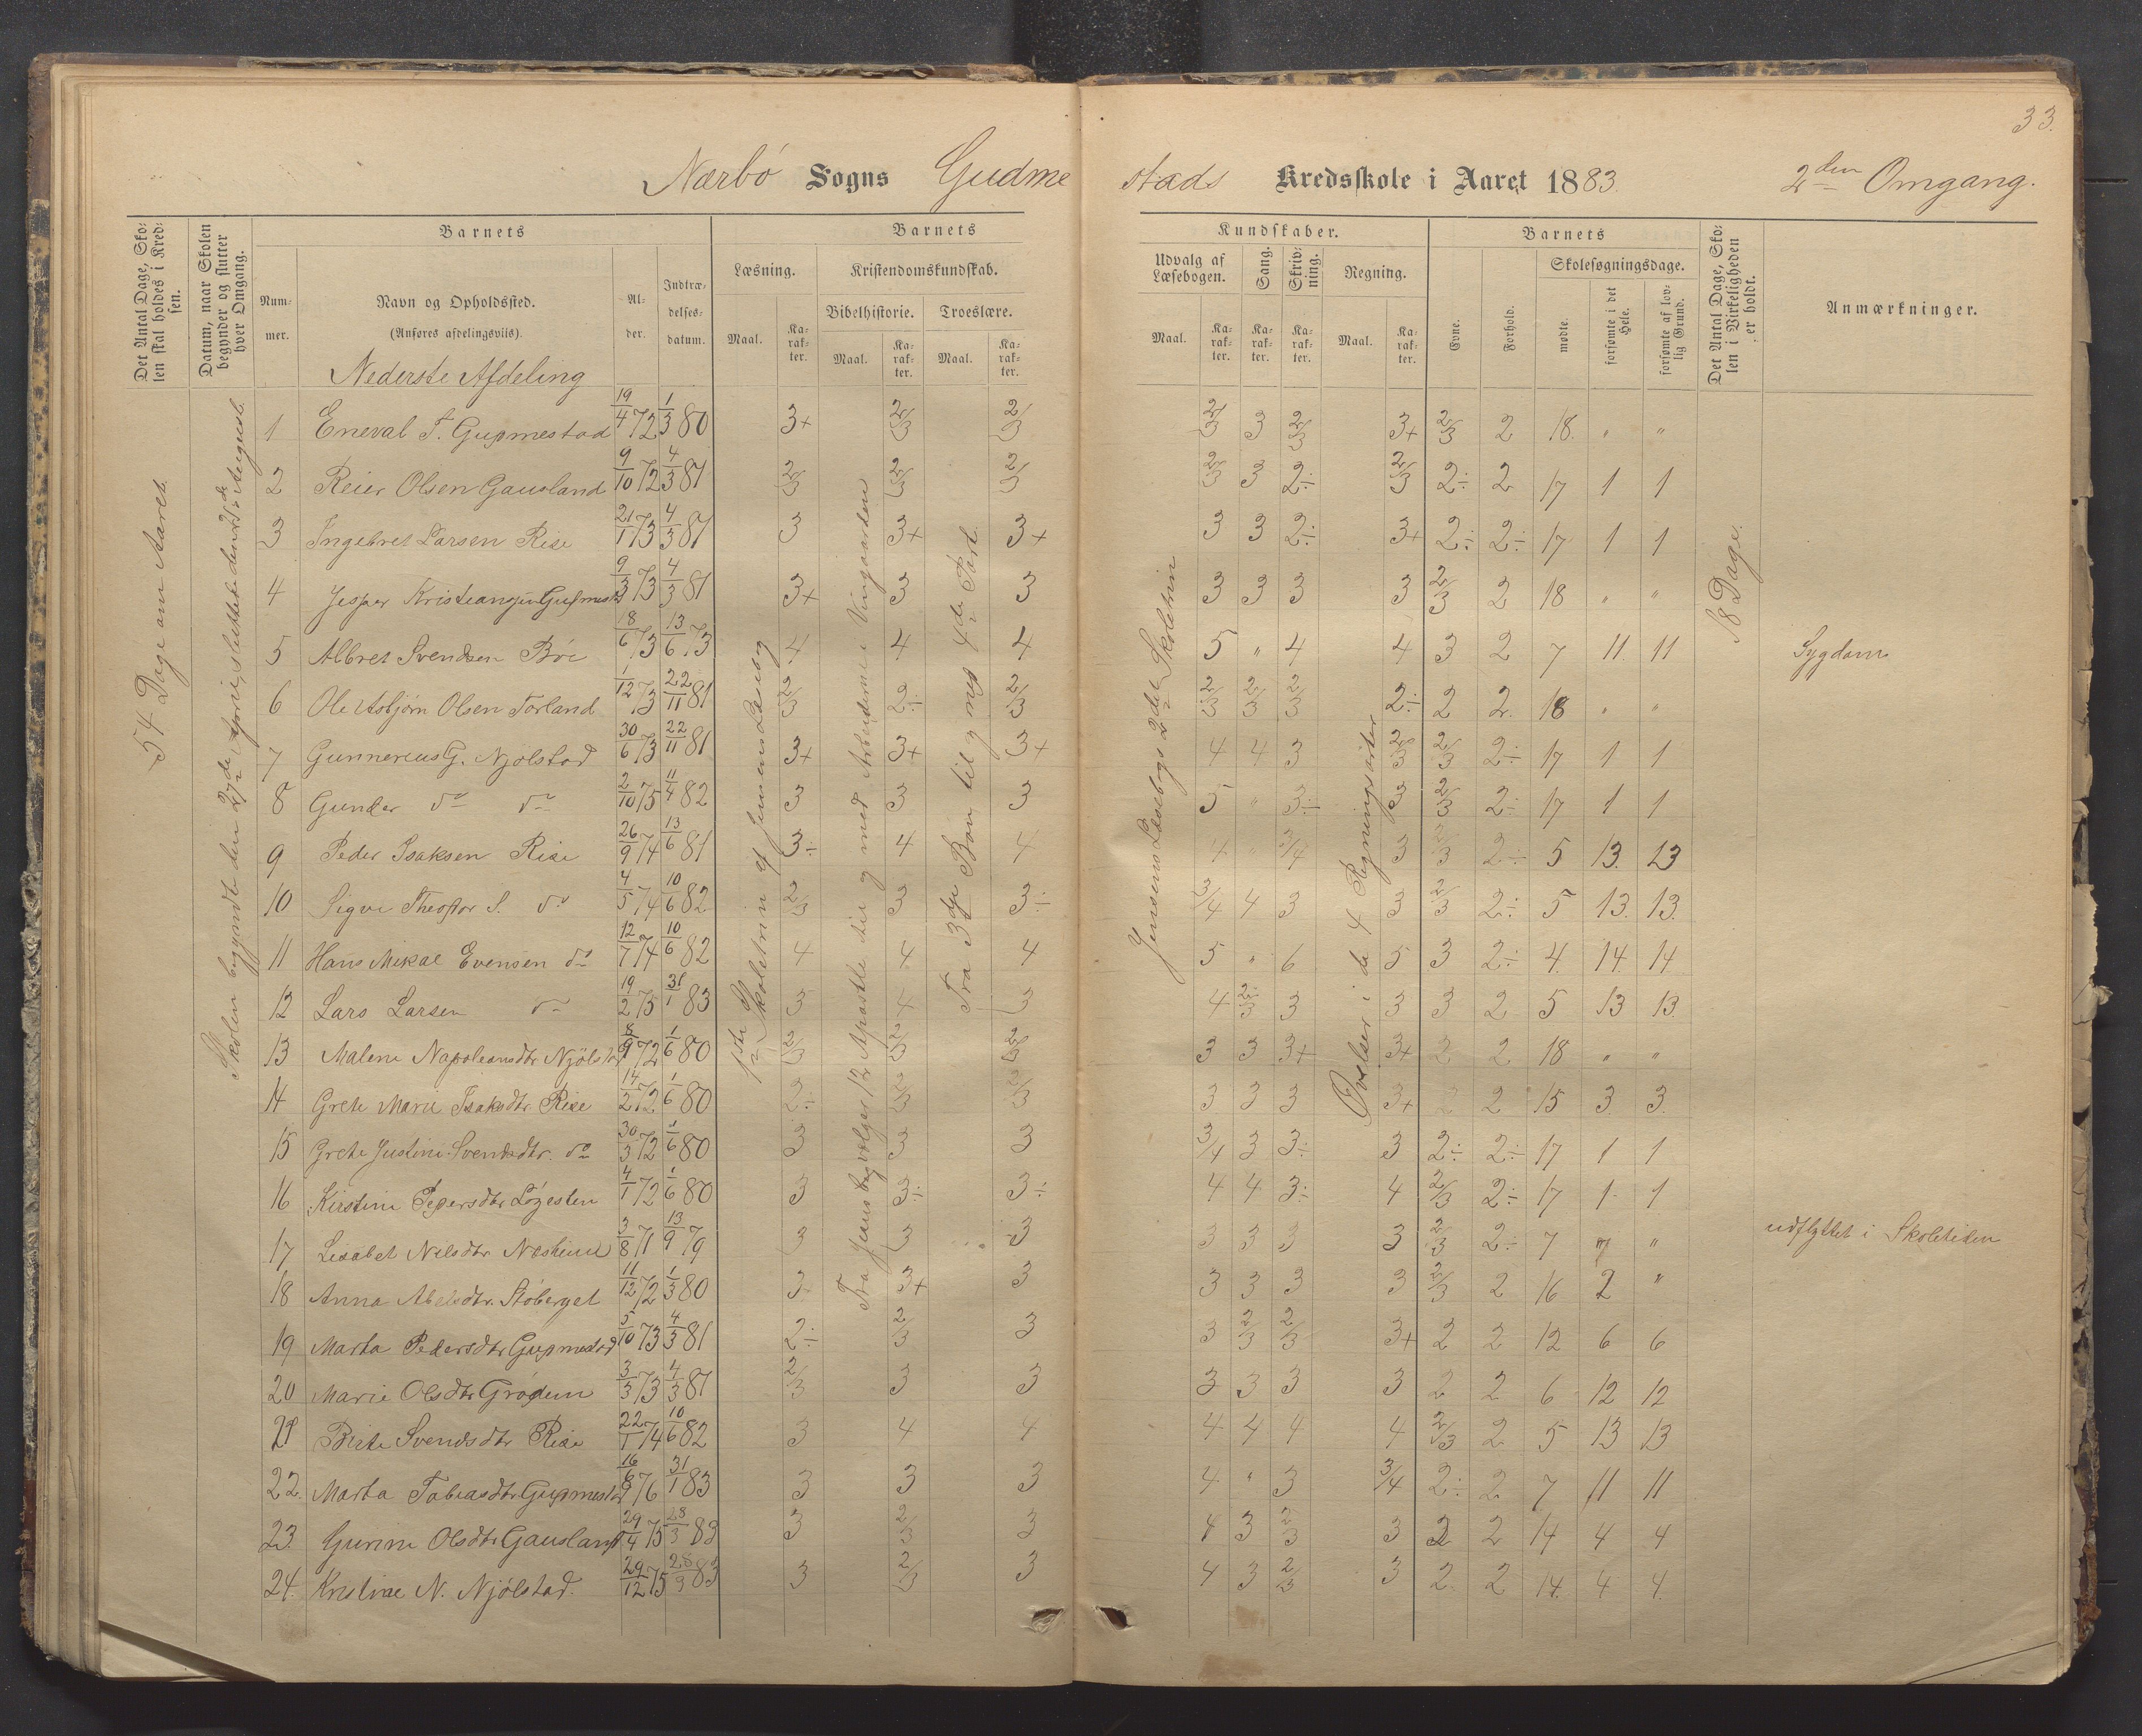 33.
Nærbö Sogns Gudmestads Kredsskole i Aaret 1883. 2den Omgang.
Det Antal Dage, Skolen skal holdes i Kredsen.
Datum, naar Skolen begynder og slutter hver Omgang.
Barnets
Nummer.
Navn og Opholdssted.
(Anføres afdelingsviis).
Alder.
Indtrædelsesdatum.
Barnets Kundskaber.
Læsning.
Maal. Karakter.
Kristendomskundskab.
Bibelhistorie. Troeslære.
Maal. Karakter. Maal. Karakter.
Udvalg af Læsebogen.
Maal. Karakter.
Sang. Karakter.
Skrivning. Karakter.
Regning.
Maal. Karakter.
Barnets
Evne. Forhold.
Skolesøgningsdage.
mødte. forsømte i det Hele. forsømte af lovlig Grund.
Det Antal Dage, Skolen i Virkeligheden er holdt.
Anmærkninger.
Nederste Afdeling
54 Dage om Aaret.
Skolen begyndt den 27de April, sluttet den 25de August.
1ste Skoletrin af Jensens Læsebog
Fra Jesus udvælger 12 Apostle til og med Arbeiderne i Vingaarden
Fra 3die Bøn til og med 4de Part.
Jensens Læsebogs 2det Skoletrin
Øvelser i de 4 Regningsarter
18 Dage.
1 Eneval T. Gudmestad 19/4 72 1/3 80 3+ 2/3 2/3 2/3 3 2/3 3+ 2/3 2 18. " "
2 Reier Olsen Gausland 9/10 72 4/3 81 2/3 2/3 2/3 2/3 3 2÷ 2/3 2÷ 2 17 1 1
3 Ingebret Larsen Rise 21/1 73 4/3 81 3 3+ 3+ 3 3 2÷ 3+ 2÷ 2÷ 17 1 1
4 Jesper Gudmestad 9/3 73 4/3 81 3+ 3 3 3 3 3 3 2/3 2 18 " "
5 Albret Svendsen Böe 18/6 73 13/6 73 4 4 4 5 " 4 4 3 2 7 11 11 Sygdom
6 Ole Asbjörn Olsen Torland 1/12 73 22/11 81 2/3 2÷ 2/3 2/3 2/3 2/3 2÷ 2 2. 18 " "
7 Gunnerius G. Njölstad 30/6 73 22/11 81 3+ 3+ 3+ 4 4 3 2/3 2/3 2÷ 17 1 1
8 Gunder do do 2/10 75 11/4 82 3 3 3 5 " 3÷ 3 2/3 2÷ 17 1 1
9 Peder Isaksen Rise 26/9 74 13/6 81 3÷ 4 4 4 " 3/4 3 2/3 2÷ 5 13. 13
10 Sigve S. do 4/5 74 10/6 82 2/3 3 3÷ 3/4 4 3 3 2/3 2÷ 5 13. 13.
11 Hans Mikal Evensen do 12/7 74 10/6 82 4 4 4 5 " 6 5 3 2÷ 4. 14. 14
12 Lars Larsen do 19/2 75 31/1 83 3 4 3 4 2/3 3 3 3 2 5 13 13.
13 Malene Napoleonsdtr Njölstad 8/9 72 1/6 80 2/3 2/3 2/3 3 3 3+ 3+ 2 2 18 " "
14 Grete Marie Isaksdtr Rise 14/2 72 1/6 80 2÷ 2/3 2/3 3 3 3 3+ 2 2 15 3 3.
15 Grete Justine Svendsdtr. do 30/3 72 1/6 80 3 3 3 3/4 3 3÷ 3 2÷ 2÷ 17 1 1
16 Kirstine Pedersdtr 4/1 72 1/6 80 3 3÷ 3÷ 4 4 3÷ 4 2/3 2÷ 17 1 1
17 Lisabet Nilsdtr. Næsheim 3/8 71 13/9 79 3 3 3 3 3 3 3 2/3 2÷ 7 " " udflyttet i Skoletiden
18 Anna Abelsdtr. Stöberget 11/12 72 1/3 80 3 3+ 3 3 3 3 3 2/3 2 16 2 "
19 Marta Pedersdtr Gudmestad 5/10 73 4/3 81 2÷ 2/3 3 3 2/3 2/3 3+ 2 2 12 6 6
20 Marie Olsdtr Grödem 3/3 73 4/3 81 2/3 3 3 3 3 3 3 2 2 6 12 12
21 Birte Svendsdtr Rise 22/1 74 10/6 82 3 4 4 4 4 4 4 2/3 2 5 13 13
22. Marta Tobiasdtr Gudmestad 16/8 76 31/1 83 3 3 3 4 " 3 3/4 2÷ 2 7 11 11
23. Gurine Olsdtr Gausland 29/4 75 28/3 83 3 2/3 3 4 3 2/3 3 2 2 14 4 4
24. Kristine N. Njölstad. 29/12 75 28/9 83 3 2/3 3 4 3 2/3 3 2. 2 14. 4 4.